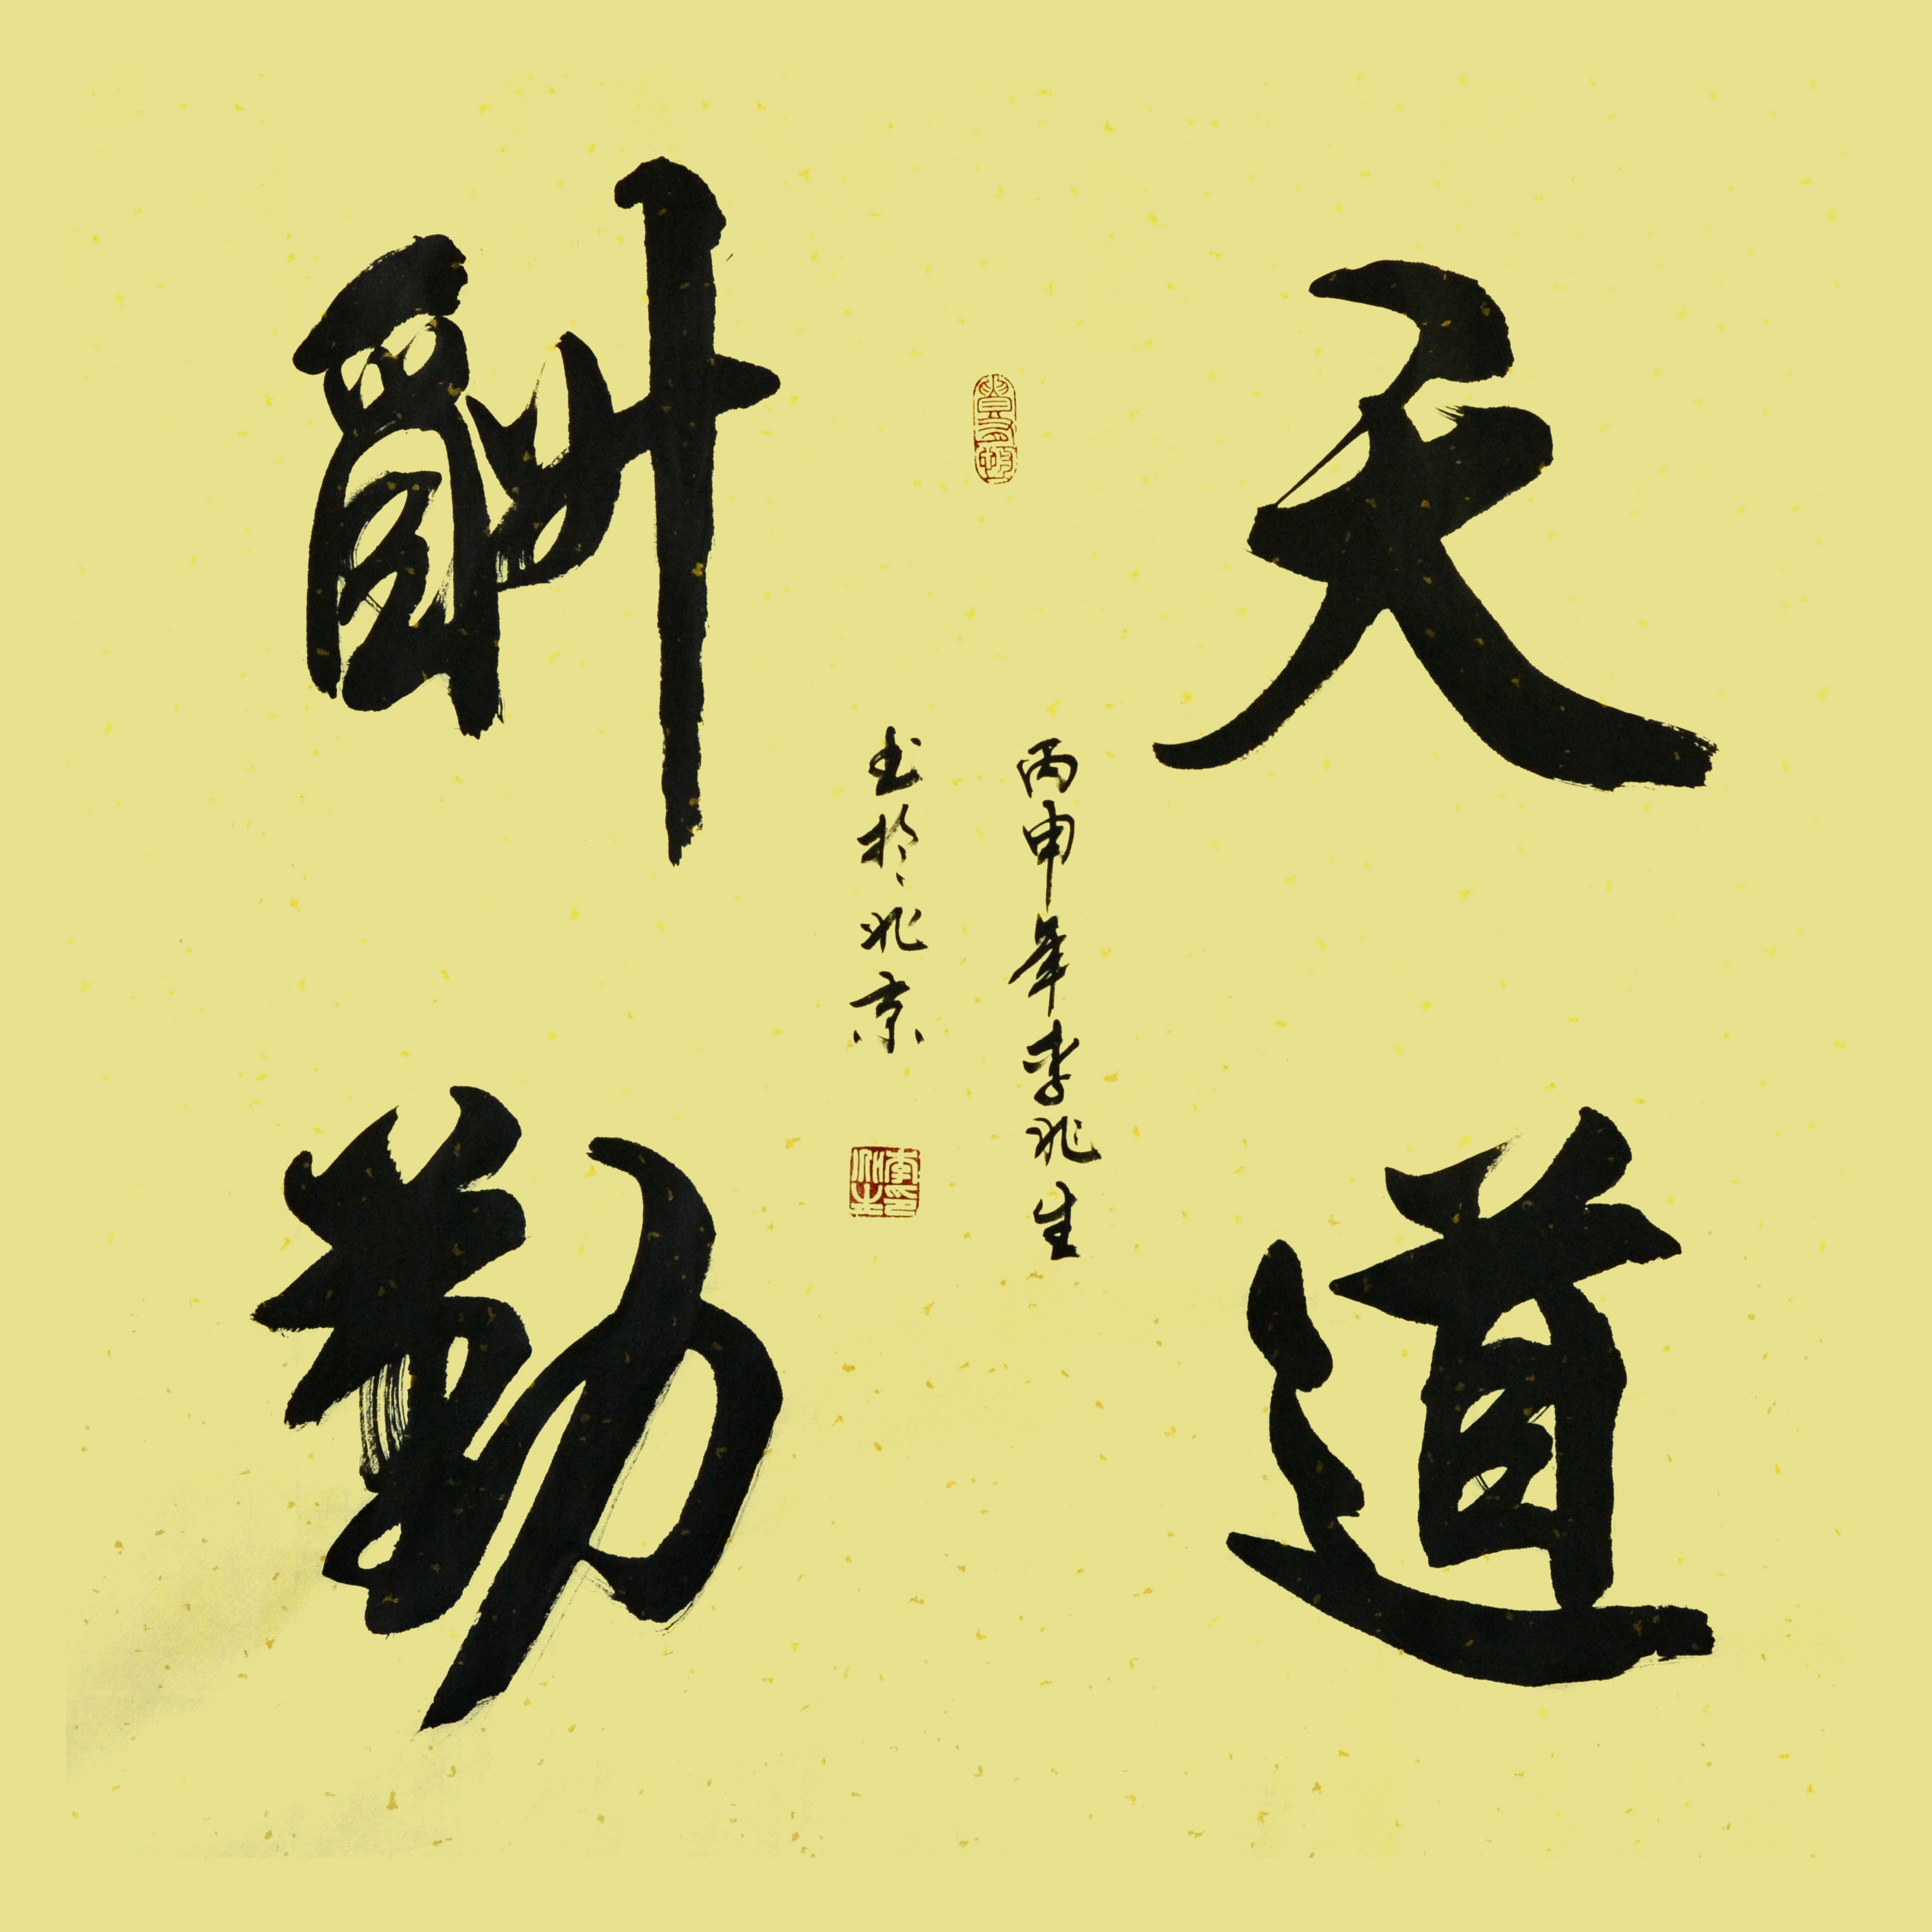 天道
酬勤
丙申年李兆生
书於北京